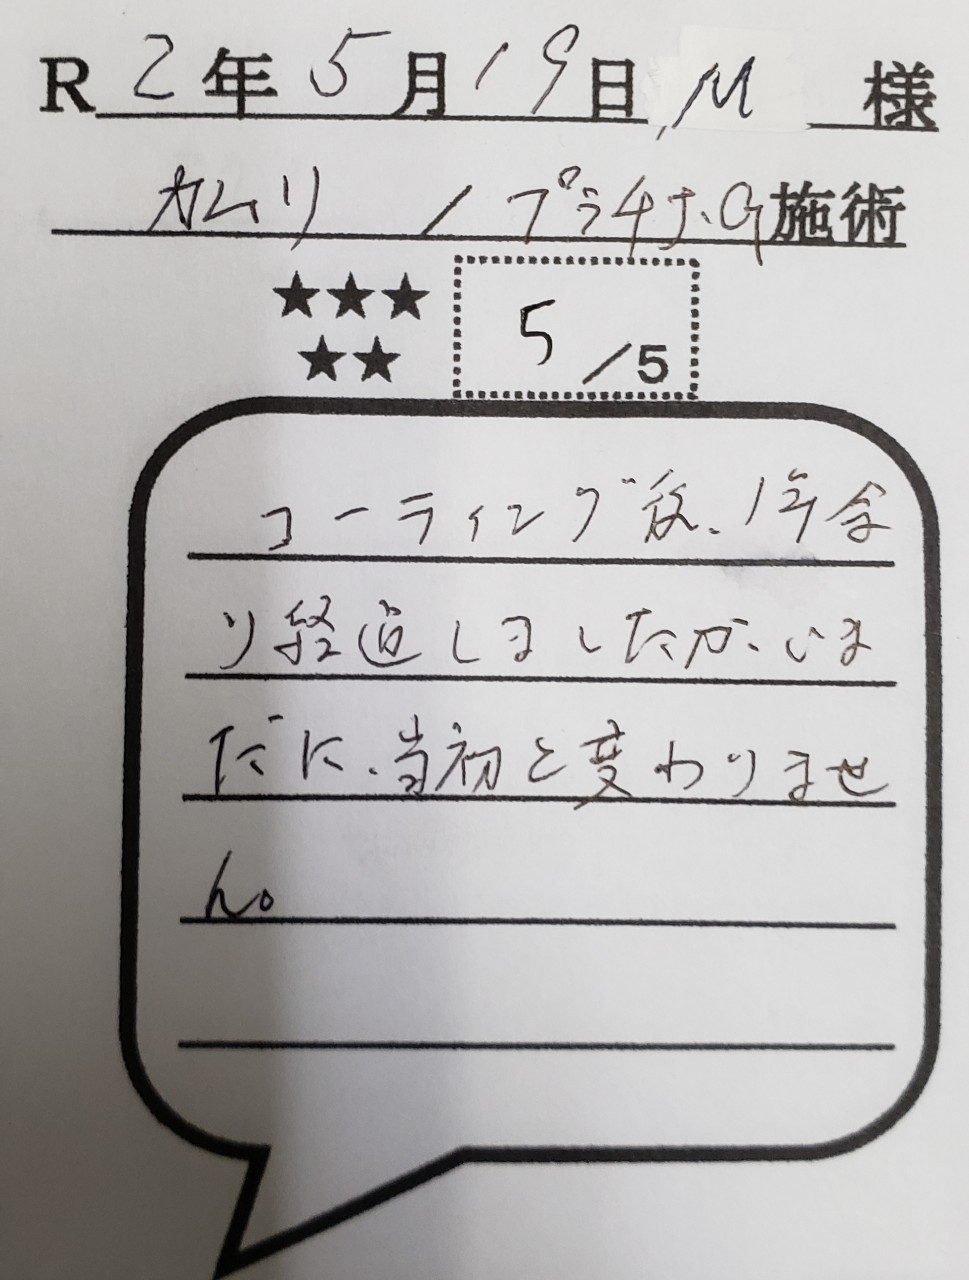 R2年5月19日 M 様
カムリ / プラチナ.G施術
★★★
5/5
★★
コーティング後、1年余
り経過しましたが、いま
だに、当初と変わりませ
ん。